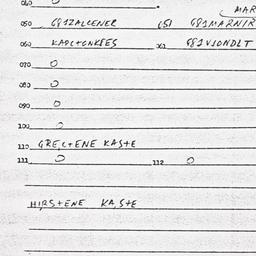 MAR
040 0
050 681ZALLENER 051 681MARNIR
060 KAPLTONKEES 061 681VJONDLT
070 0
080 0
090 0
100 0
110 GRELTENE KASTE
111 0 112 0
HIRSTENE KASTE